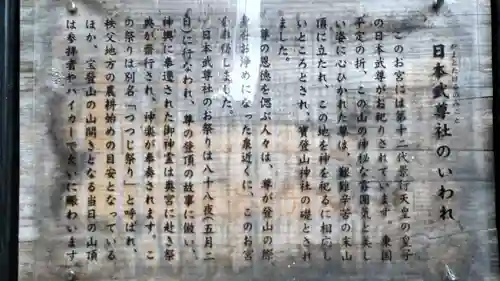 やまとたけるのみこと
日本武尊社のいわれ
このお宮には第十二代景行天皇の皇子
の日本武尊がお祀りされています 東国
平定の折、この山の神秘な雰囲気と美し
い姿に心ひかれた尊は、艱難辛苦の末山
頂に立たれ、この地を神を祀るに相応し
いところとされ、寳登山神社の礎とされ
ました。
尊の恩徳を偲ぶ人々は、尊が登山の際、
身をお浄めになった泉近くに、このお宮
をお祀りしました。
日本武尊社のお祭りは八十八夜(五月二
日)に行なわれ、尊の登頂の故事に倣い、
神輿に奉遷された御神霊は奥宮に赴き祭
典が齋行され、神楽が奉奏されます。こ
の祭りは別名「つつじ祭り」と呼ばれ、
秩父地方の農耕始めの目安となっている
ほか、宝登山の山開きとなる当日の山頂
は参拝者やハイカーで大いに賑わいます。